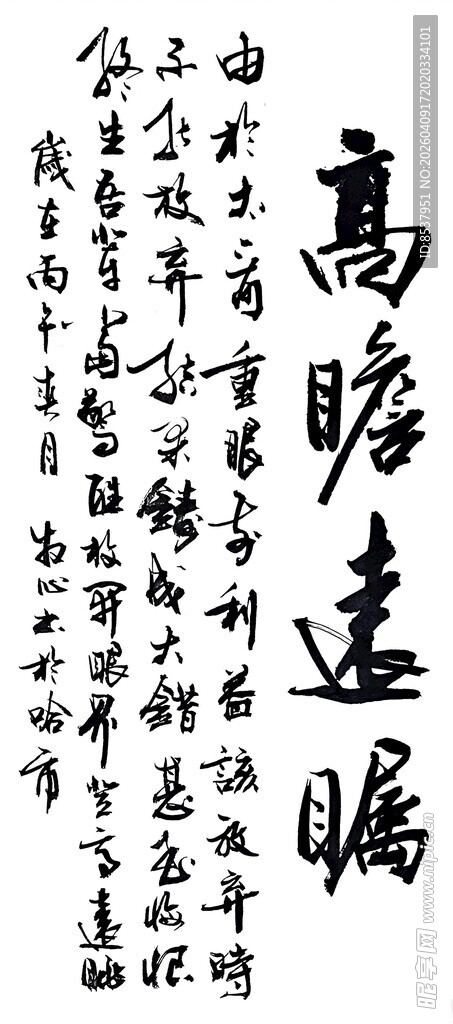 高瞻遠瞩
由於太看重眼前利益該放弃時
不能放弃結果鑄成大錯甚至悔恨
終生吾輩當警醒放開眼界登高遠眺
歲在丙午春月 牧心书於哈市
ID:8537951 NO:20260409172020334101
昵享网 www.nipic.cn